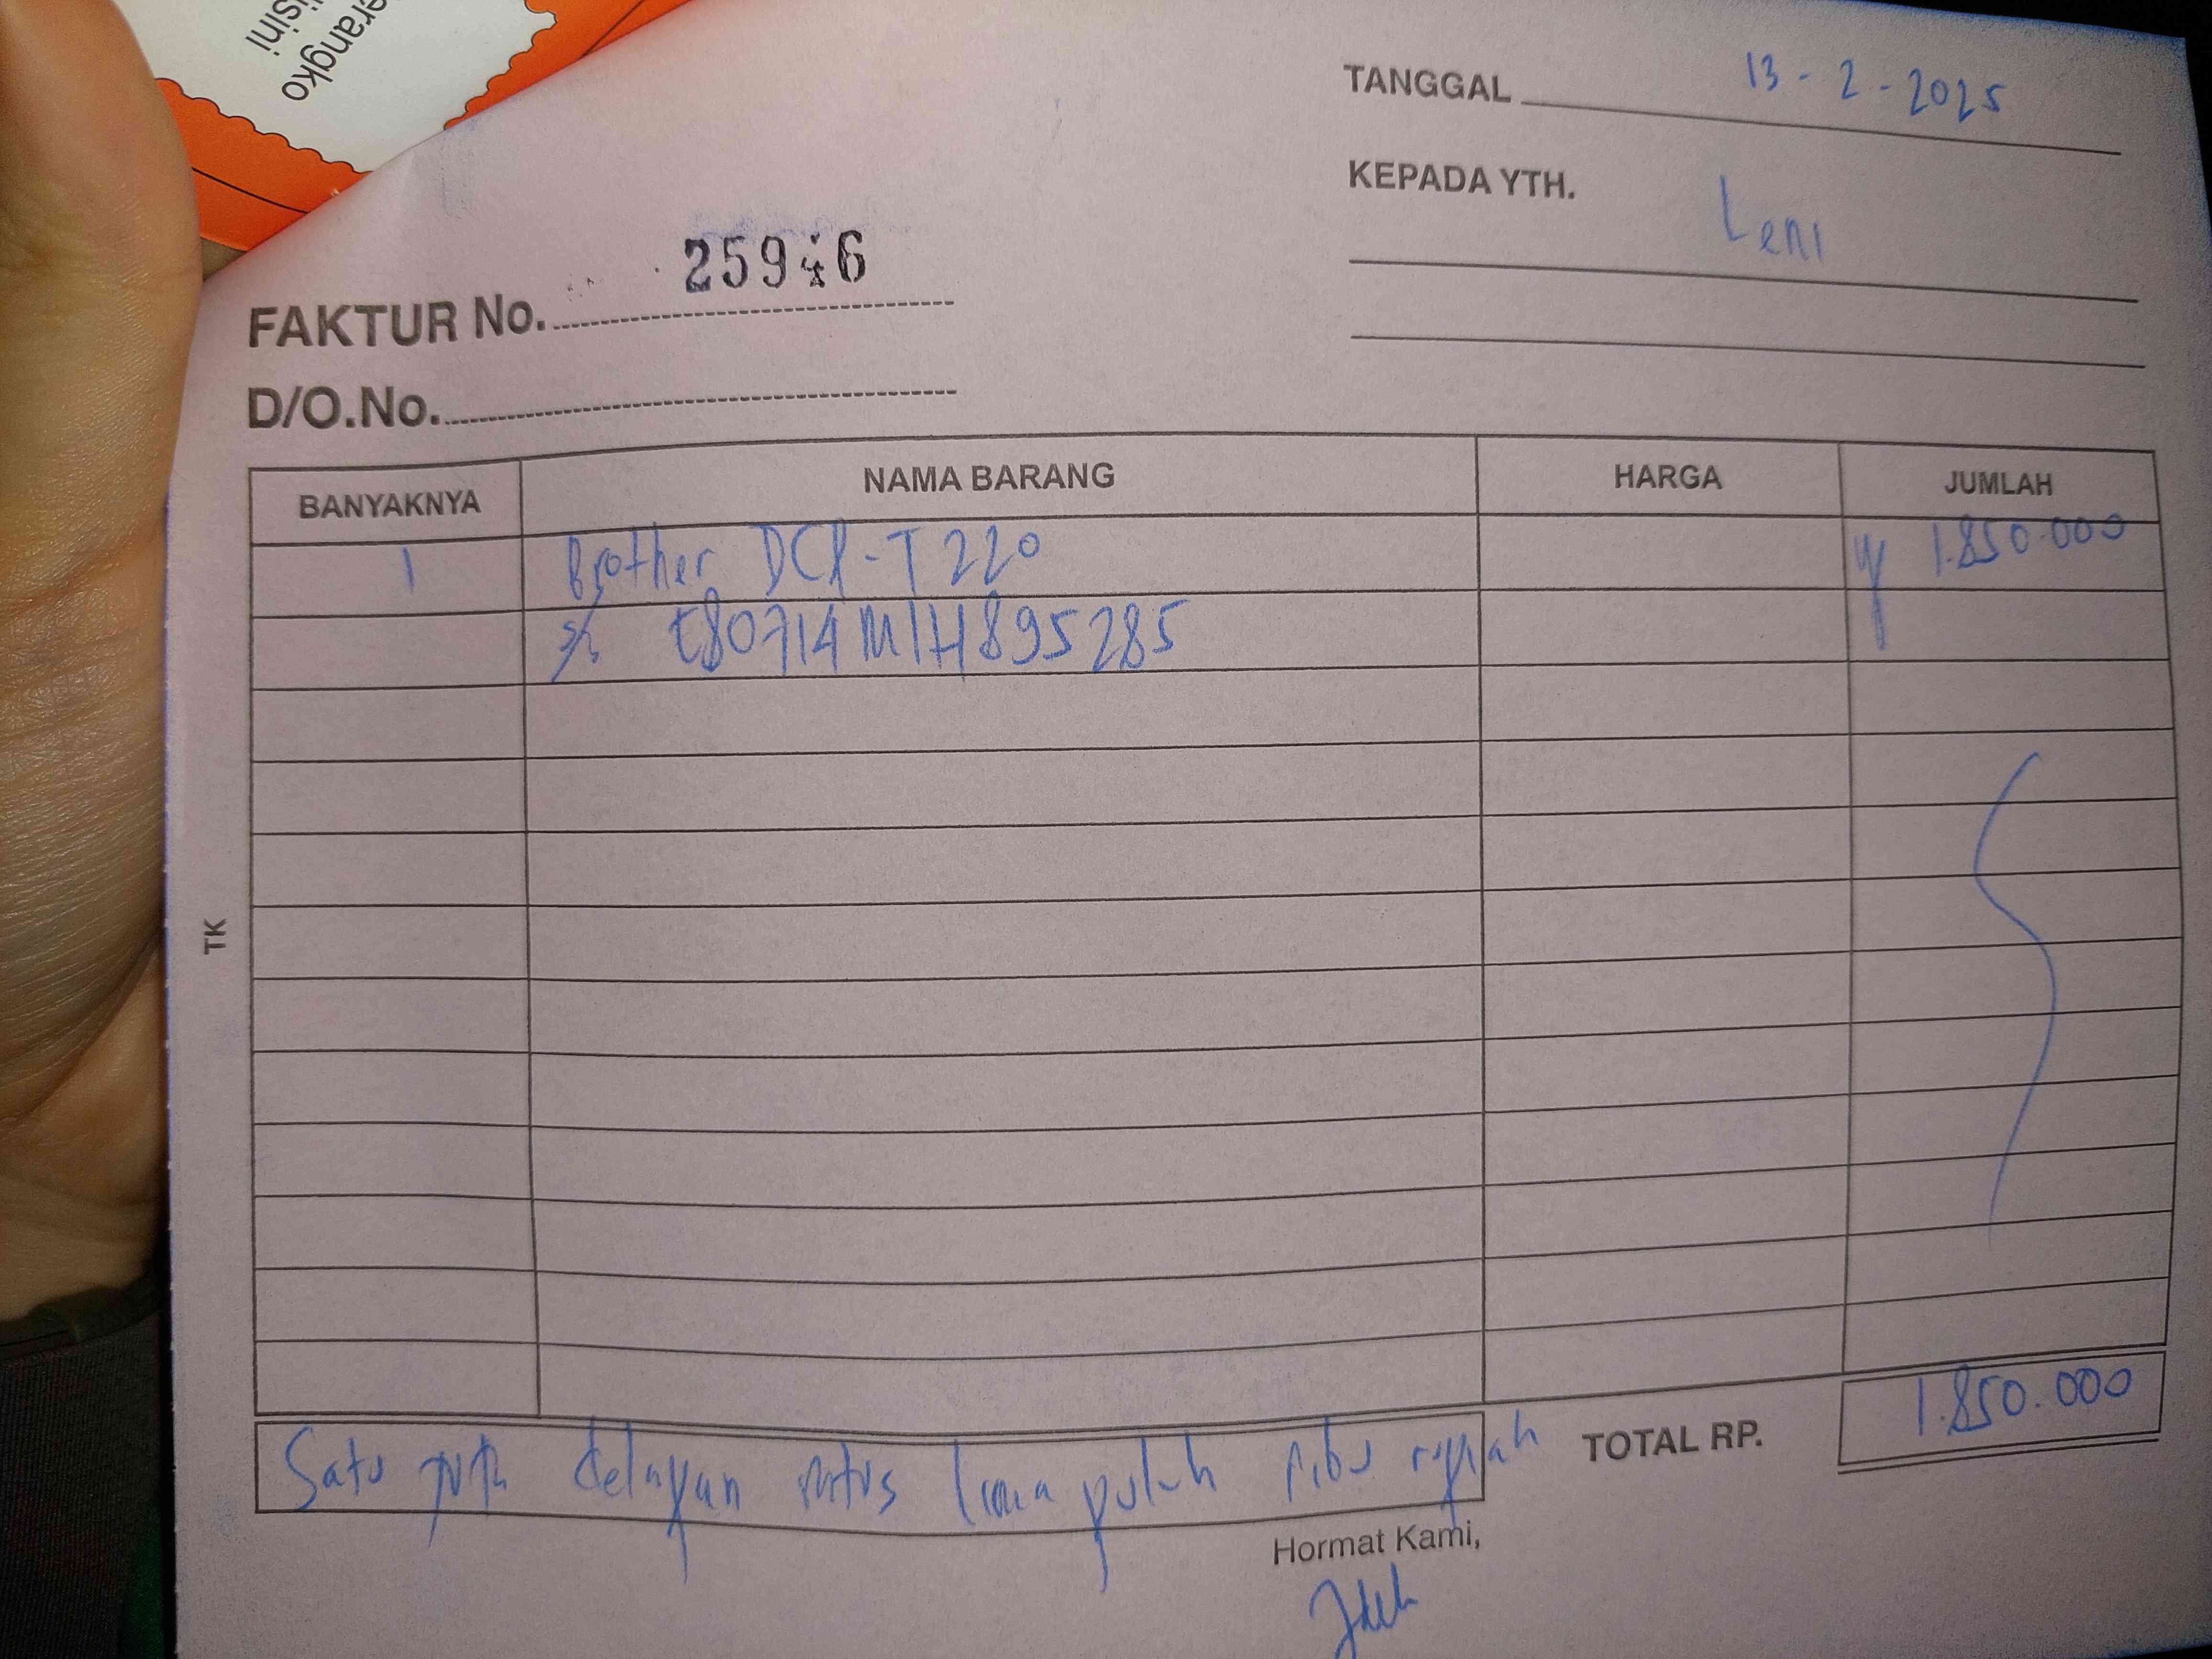 erangko
isini
TANGGAL 13-2-2025
KEPADA YTH. Leni
FAKTUR No. 25946
D/O.No.
BANYAKNYA NAMA BARANG HARGA JUMLAH
1 Brother DCP-T220 1.850.000
E80714M1H895285
TK
Satu juta delapan ratus lima puluh ribu rupiah TOTAL RP. 1.850.000
Hormat Kami,